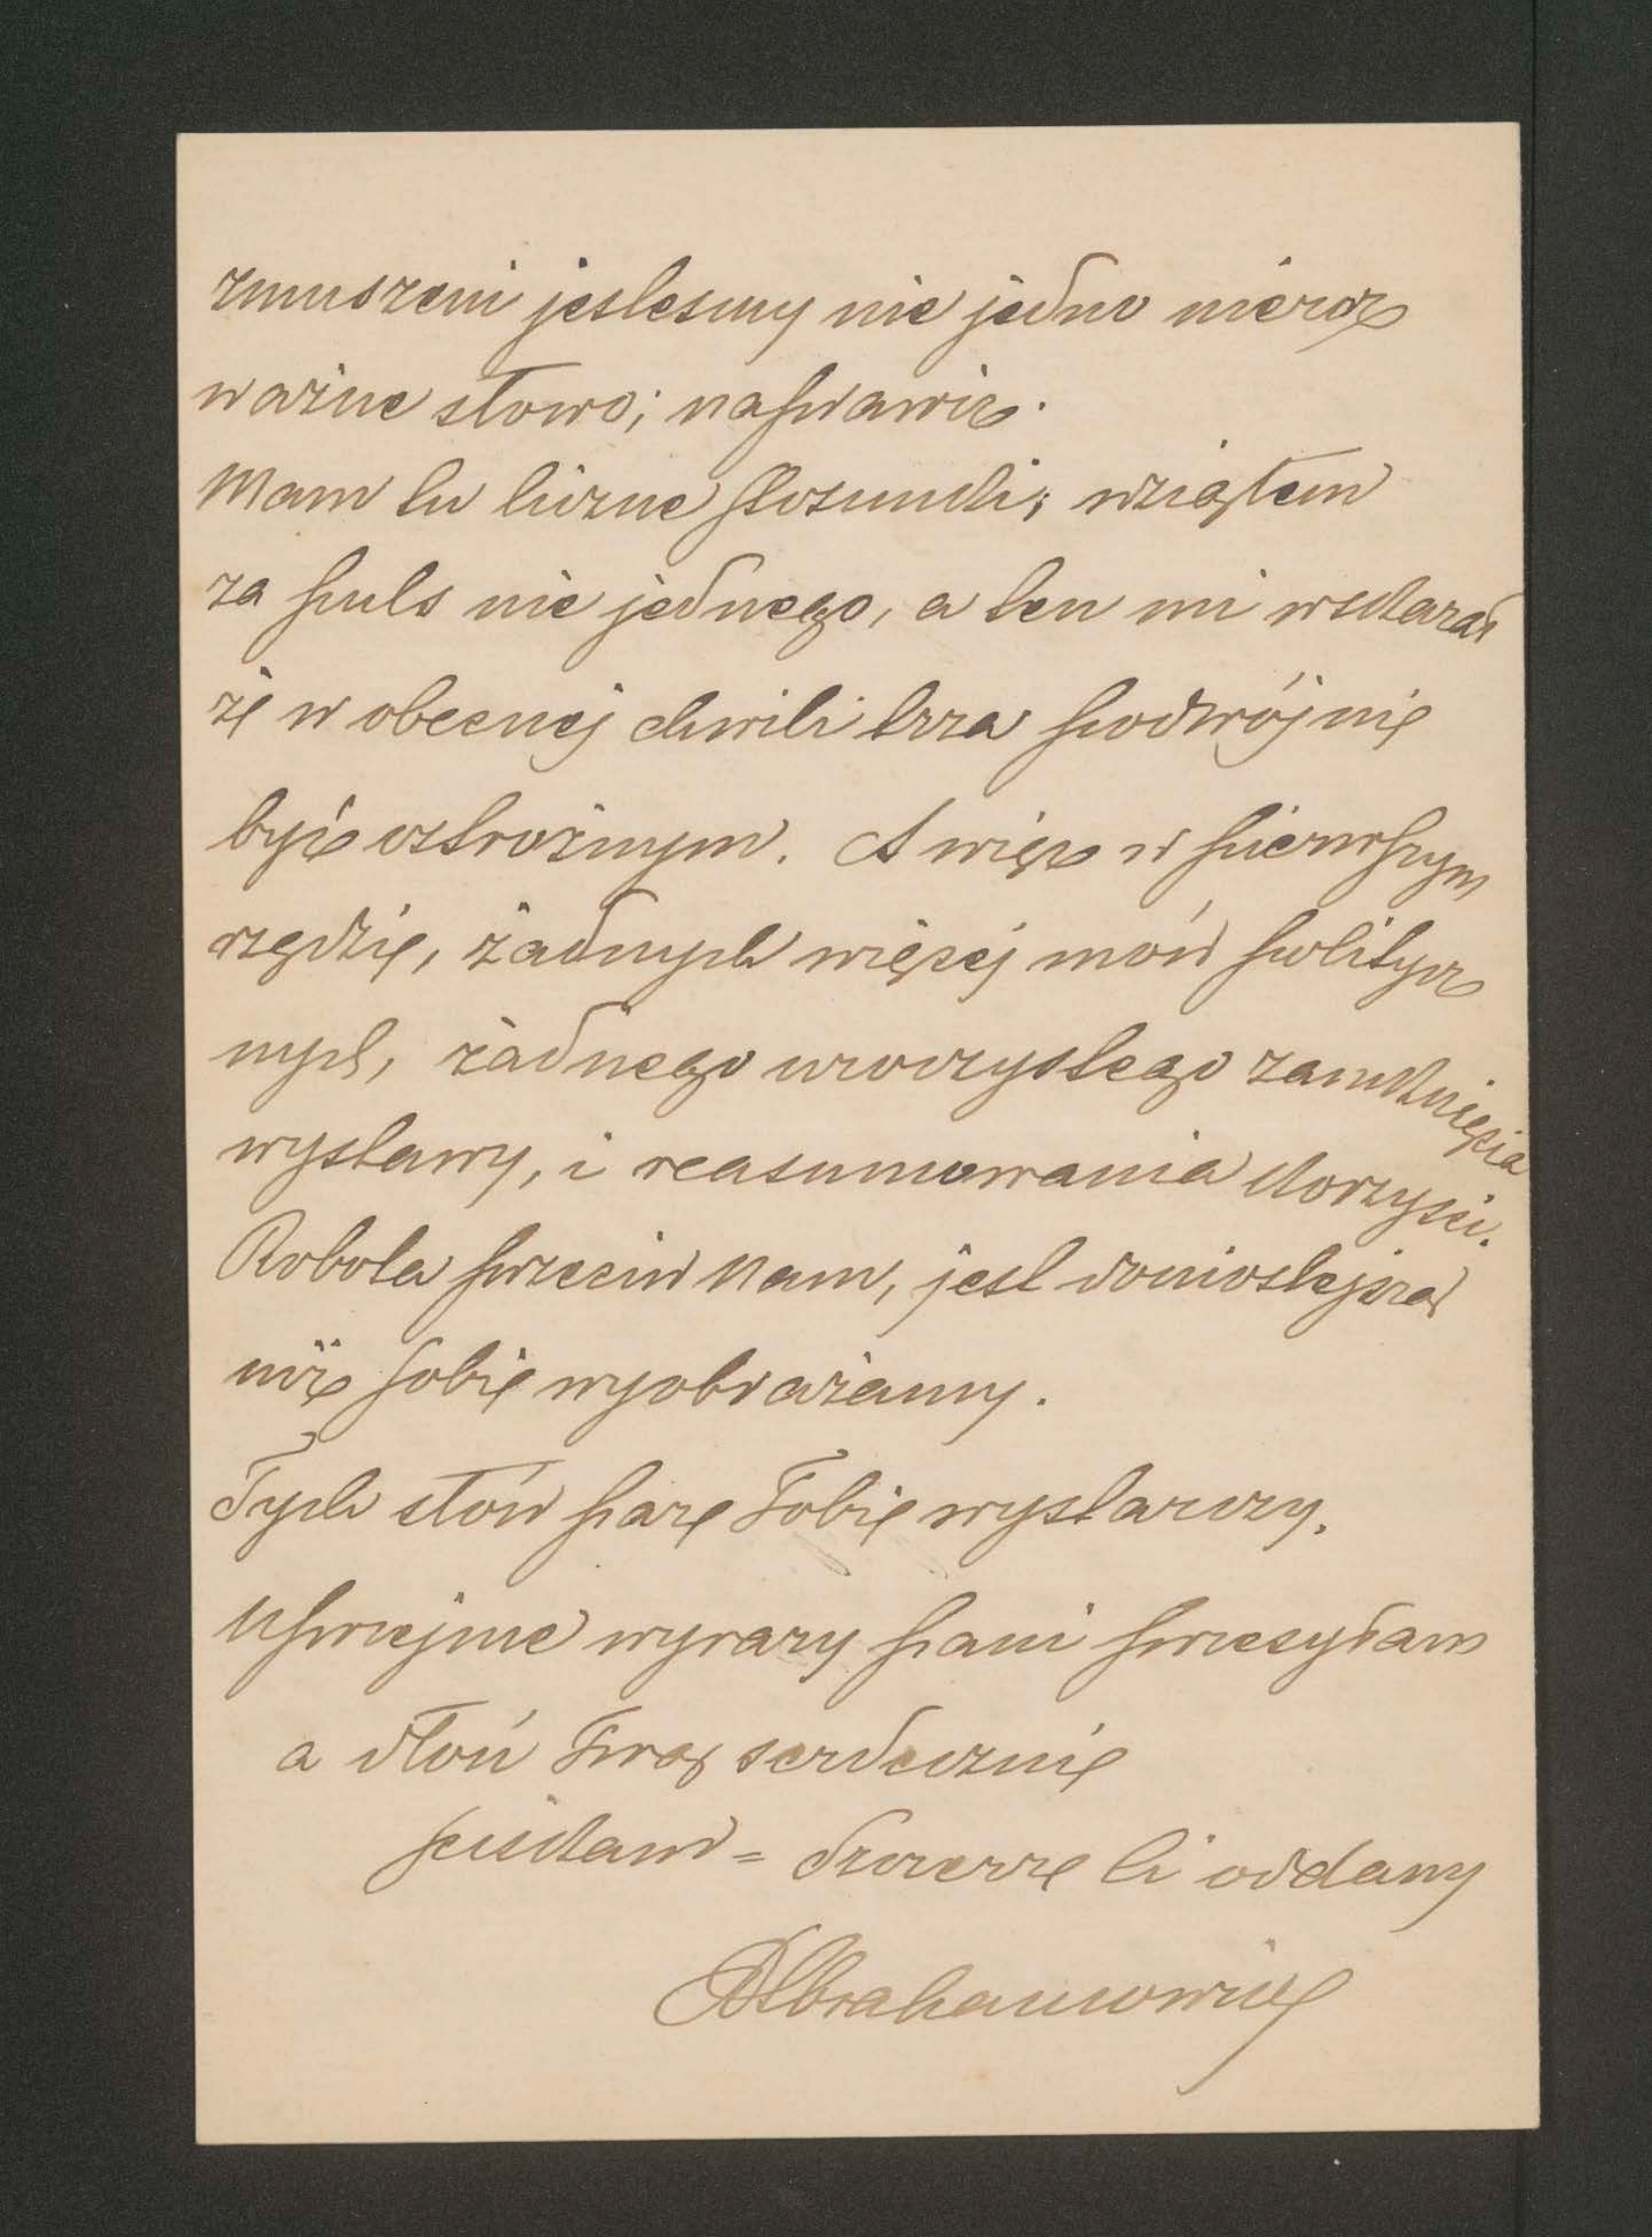 zmuszeni jestesmy nie jedno nieroz
ważne słowo; naprawic.
Mam tu liczne stosunki; wziąłem
za puls nie jednego, a ten mi wskazał
że w obecnej chwili trza podwójnie
być ostrożnym. A więc w pierwszym
rzędzie, żadnych więcej mów politycz
nych, żadnego uroczystego zamknięcia
wystawy, i reasumowania korzyści.
Robota przeciw Nam, jest doniosłejsza
niż sobie wyobrażamy.
Tych słów parę Tobie wystarczy.
Uprzejme wyrazy pani przesyłam
a dłoń Twą serdecznie
sciskam = Szczerze Ci oddany
DAbrahamowicz